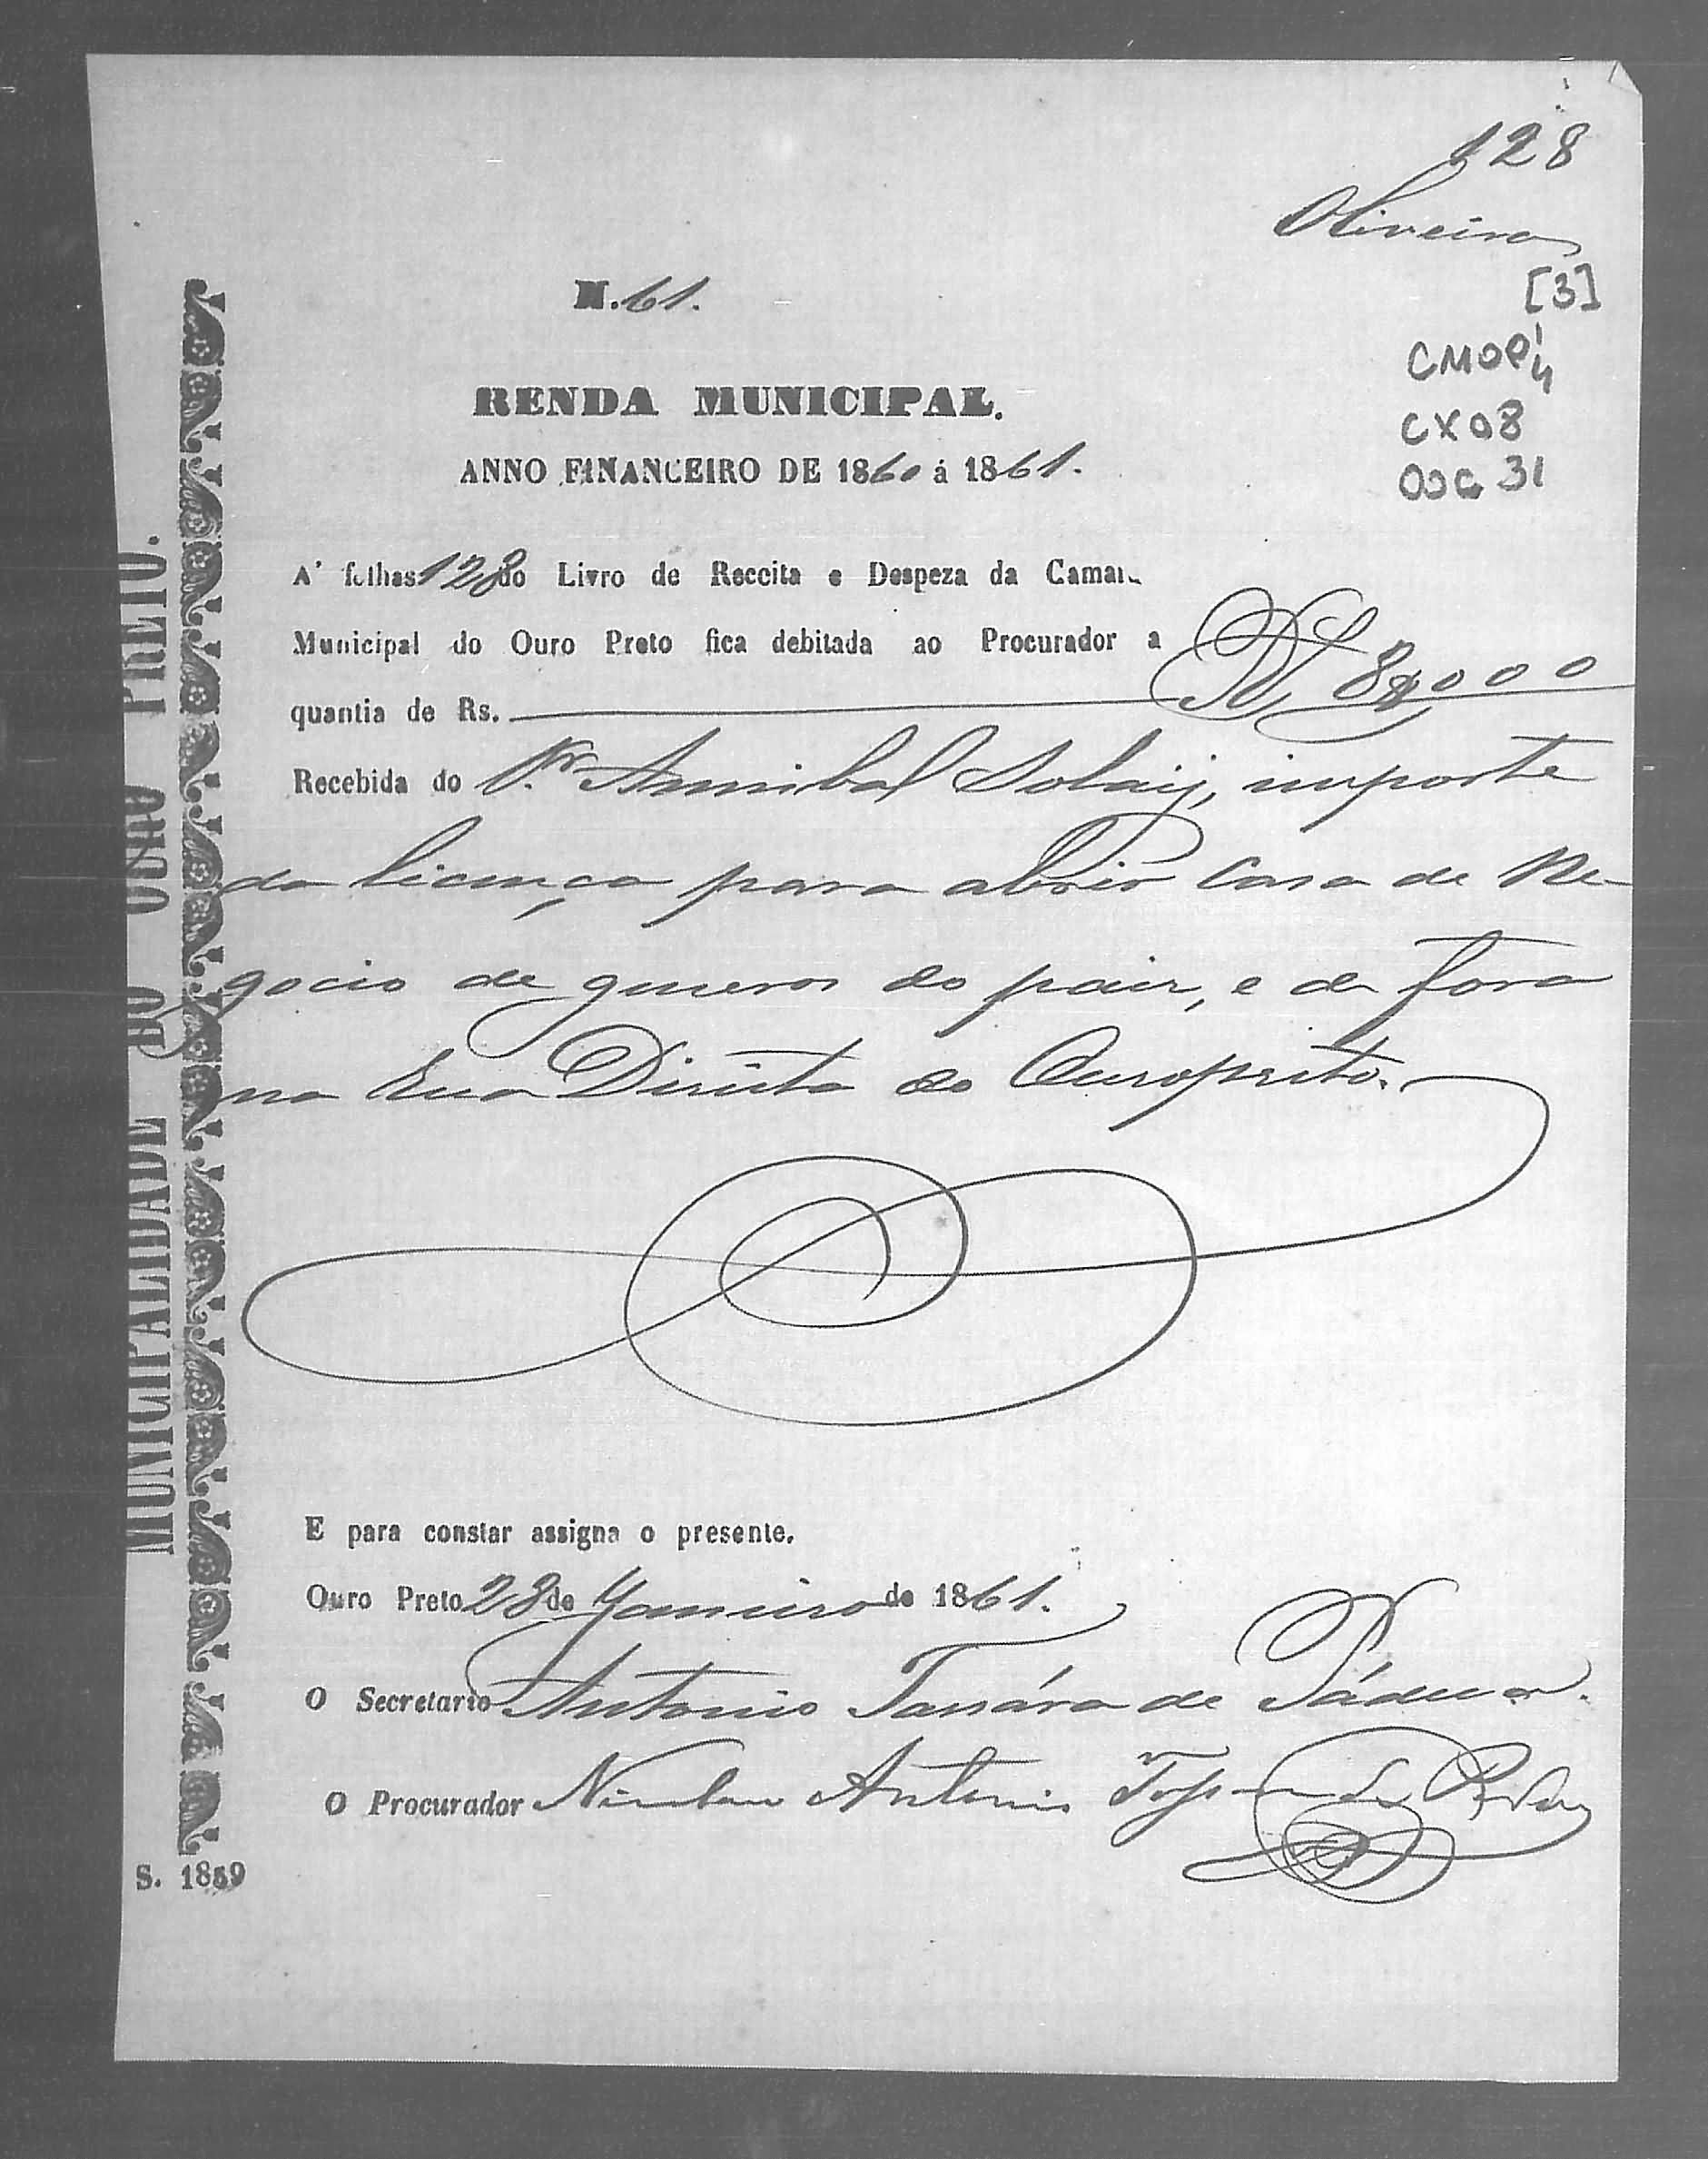 128
Oliveira
[3]
CMOP
CX 08
DOC 31
N. 61.
RENDA MUNICIPAL.
ANNO FINANCEIRO DE 1860 á 1861.
A' folhas 128 do Livro de Receita e Despeza da Camara
Municipal do Ouro Preto fica debitada ao Procurador a
quantia de Rs. 8$000
Recebida do Sr. Annibal importe
da licença para abrir Casa de Ne-
gocio de generos do paiz, e de fora
na Rua Direita do Ouropreto.
E para constar assigna o presente.
Ouro Preto 28 de Janeiro de 1861.
O Secretario Antonio Tassára de Pádua.
O Procurador Nicolau Antonio Tassara de Padua
MUNICIPALIDADE DO OURO PRETO.
S. 1859